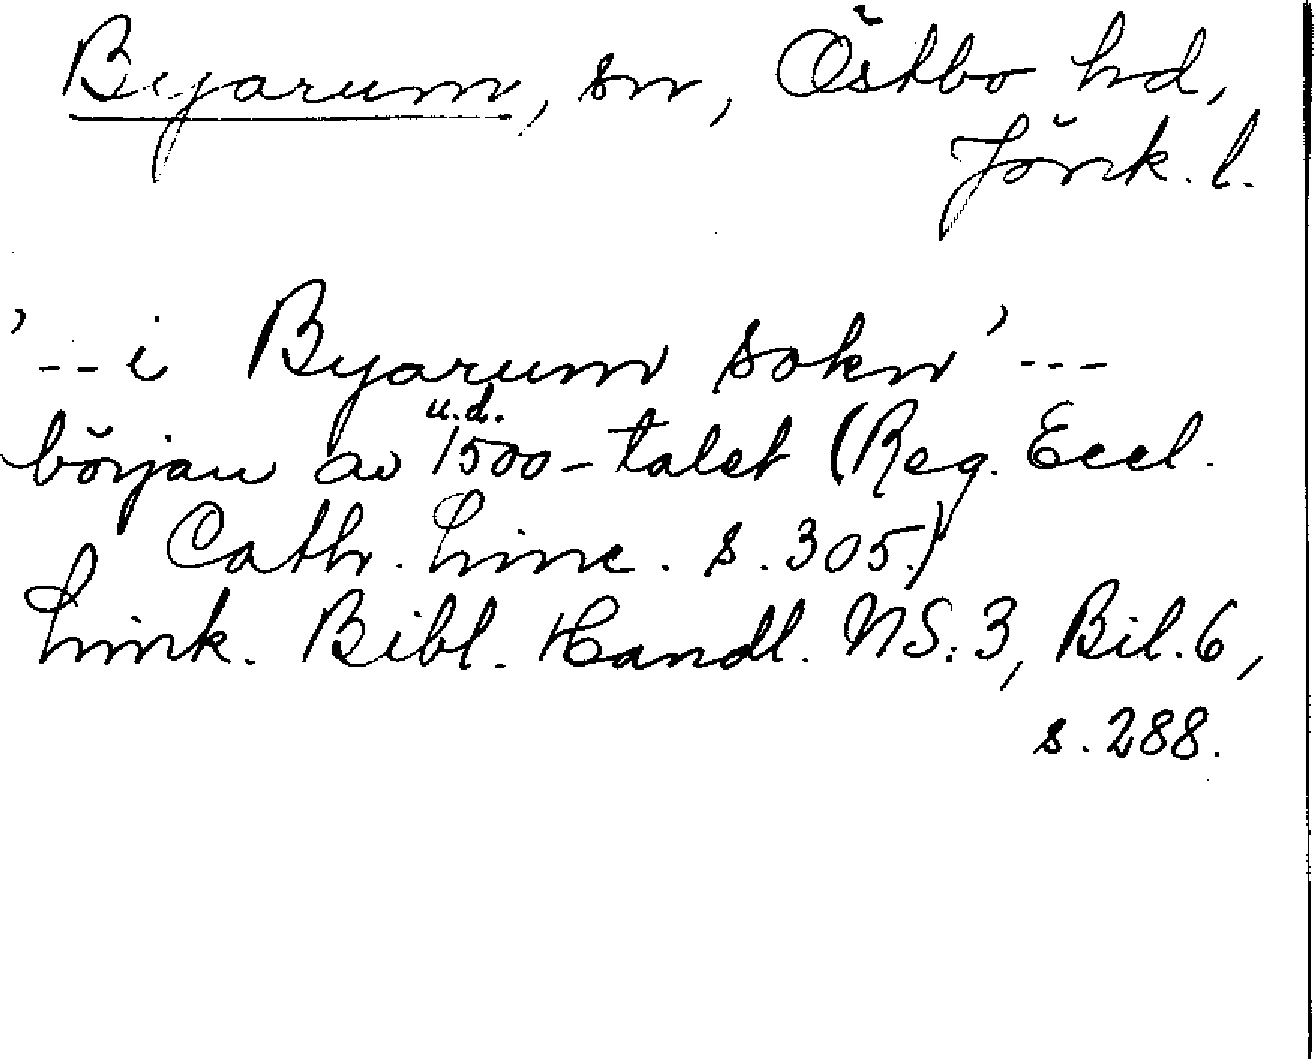 Byarum, sn, Östbo hd,
Jönk. l.
'--i Byarum sokn' ---
u.d.
början av 1500-talet (Reg. Eccl.
Cath. Linc. s. 305.)
Link. Bibl. Handl. NS: 3, Bil. 6,
s. 288.